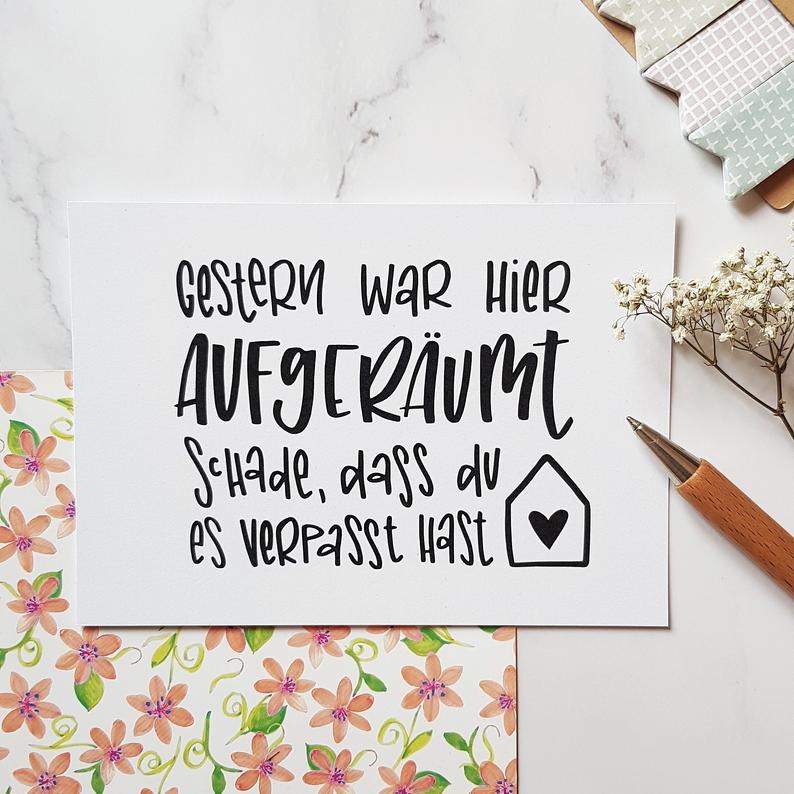 Gestern war hier
AUFGERÄUMT
Schade, dass du
es verpasst hast